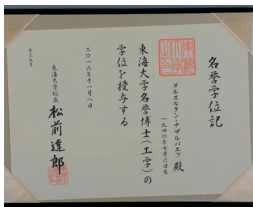 名誉学位記
ヌルスルタン・ナザルバエフ 殿
一九四〇年七月六日生
東海大学名誉博士(工学)の
学位を授与する
二〇一六年十一月八日
東海大学総長
松前達郎